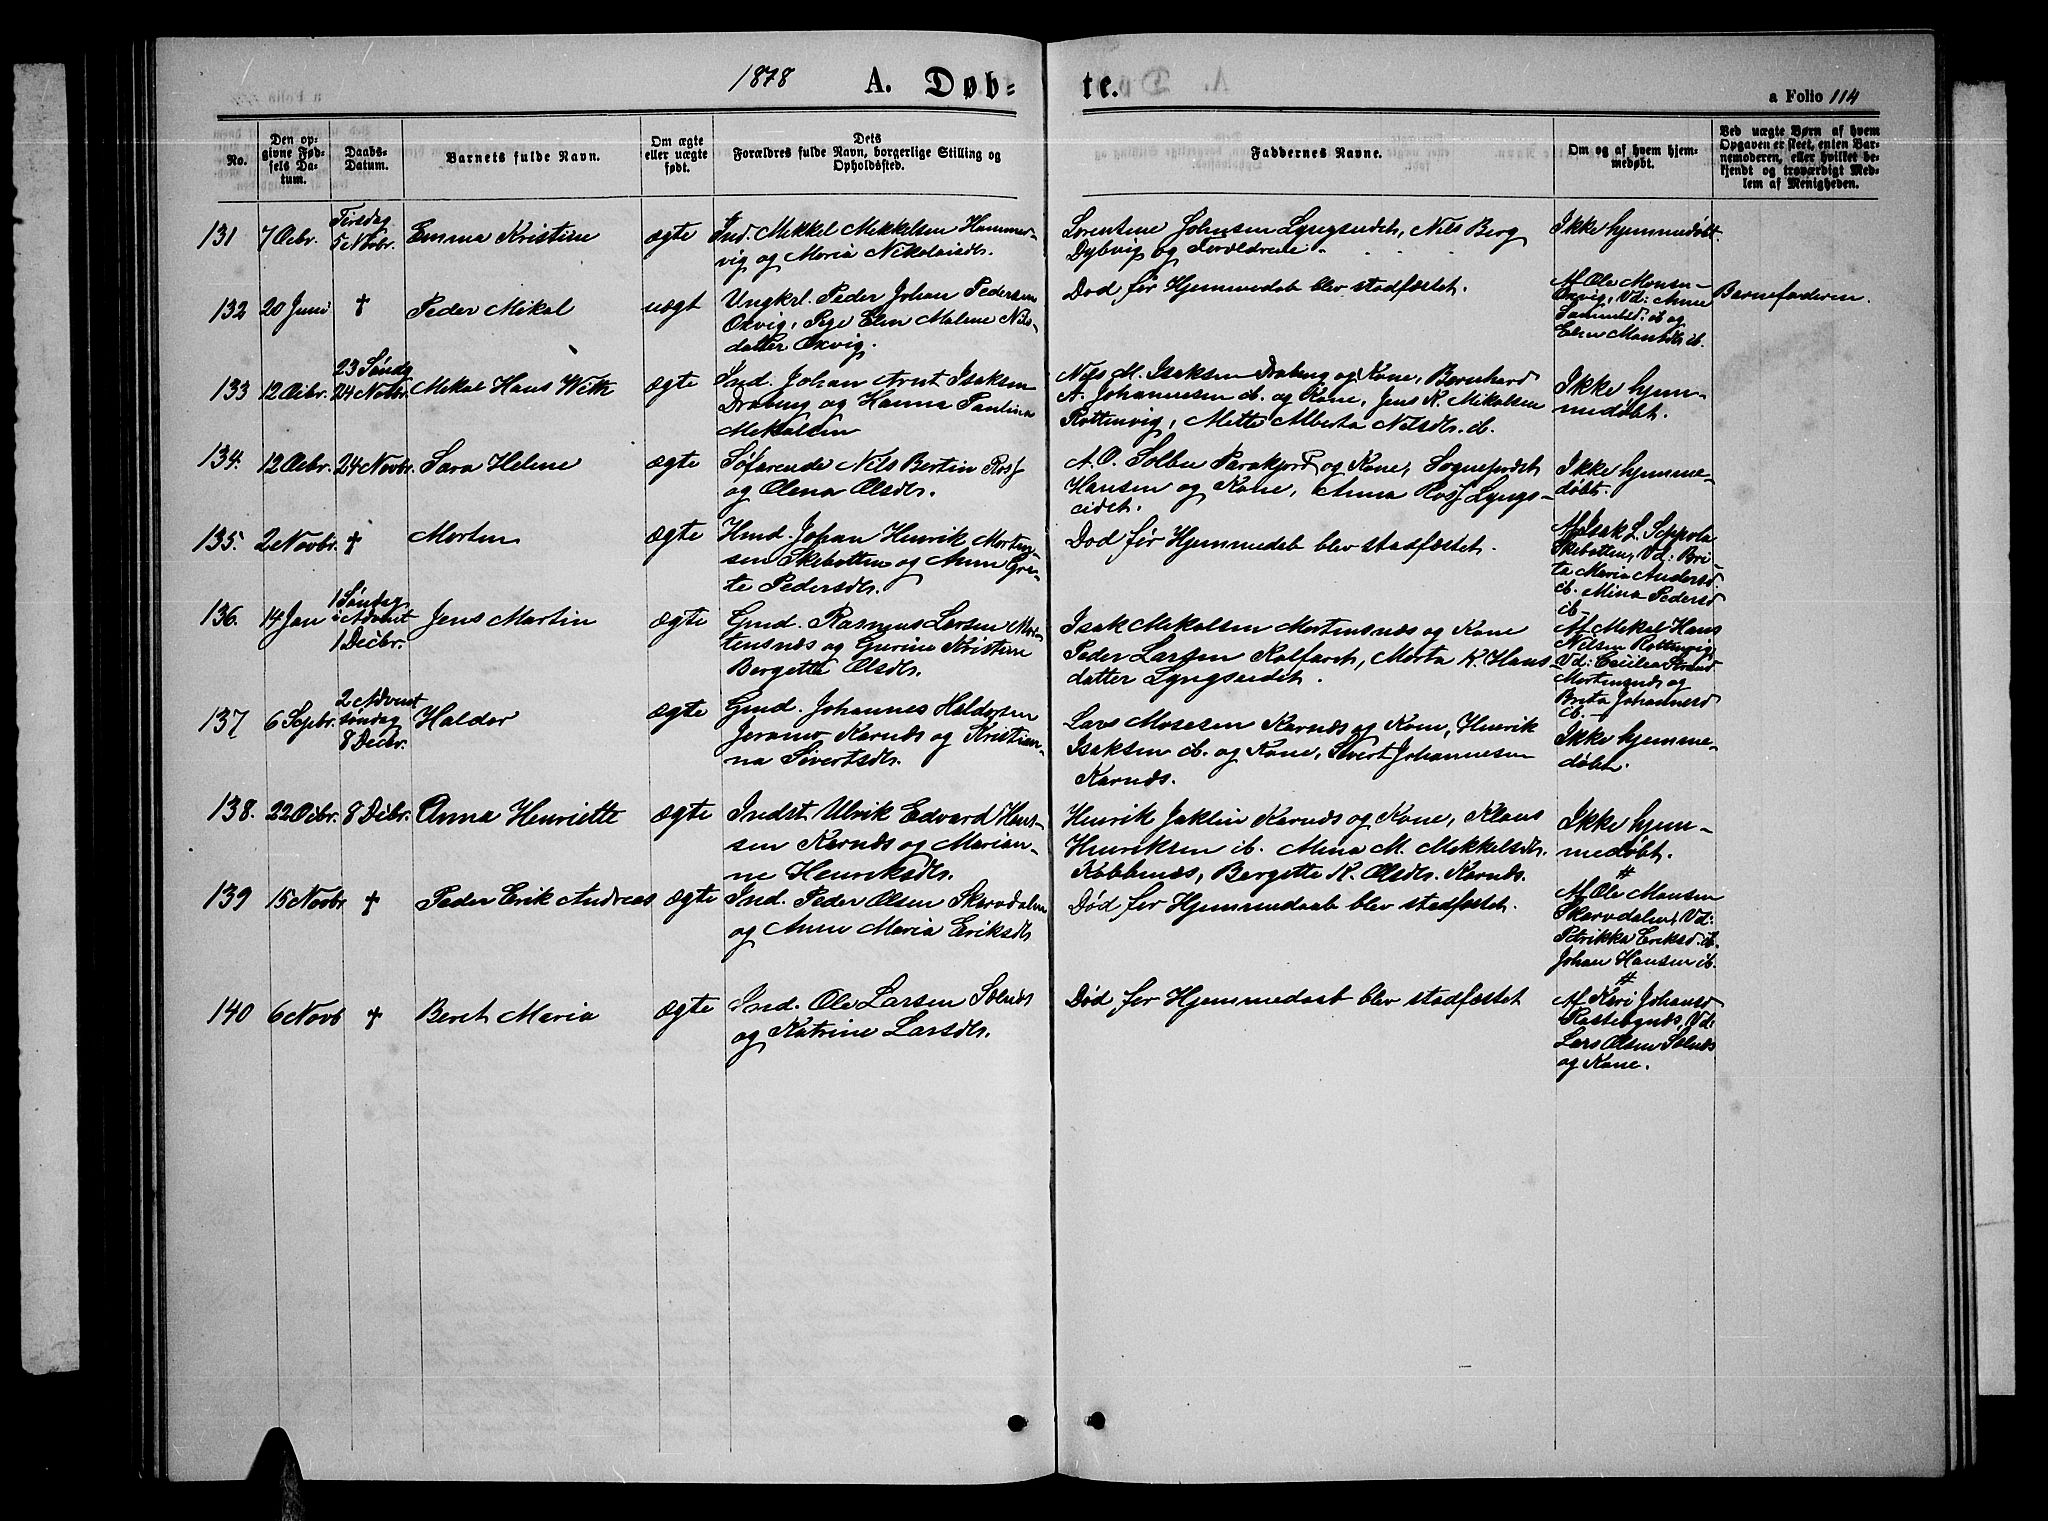 1878 A. Døb=te. a Folio 114
No.
Den opgivne Fødsels Datum.
Daabs-Datum.
Barnets fulde Navn.
Om ægte eller uægte født.
Dets Forældres fulde Navn, borgerlige Stilling og Opholdssted.
Faddernes Navne.
Om og af hvem hjemmedøbt.
Ved uægte Børn af hvem Opgaven er skeet, enten Barnemoderen, eller hvilket bekjendt og troværdigt Medlem af Menigheden.
131 7 Octbr. Tirsdag 5 Novbr. Emma Kristine ægte Ind. Mikkel Mikkelsen Hammervig og Maria Nikolaisdr.
Lorentine Johnsen Lyngseidet, Nils Berg Dybvig og Forældrene.
Ikke hjemmedøbt.
132 20 Juni † Peder Mikal uægt Ungkrl. Peder Johan Pedersen Oxvig, Pige Elen Malene Nilsdatter Oxvig.
Død før Hjemmedab blev stadfæstet.
Af Ole Monsen Oxvig, Vd: Anne Samuelsd: ib og Elen Monsdr ib.
Barnefaderen.
133 12 Octbr. 23 Søndg 24 Novbr. Mikal Hans Wetk ægte Ind. Johan Arnt Isaksen Draberg og Hanna Paulina Mikalsen
Nils M. Isaksen Draberg og Kone, Bernhard A. Johannesen ib. og Kone, Jens K. Mikalsen Rottenvig, Mette Alberta Nilsdr. ib.
Ikke hjemmedøbt.
134. 12 Octbr. 24 Novbr. Sara Helene ægte Søfarende Nils Bertin Rosf og Olena Olsdr.
A. O. Solbu Parakjord og Kone, Sognepræst Hansen og Kone, Anna Rosf Lyngseidet.
Ikke hjemmedøbt.
135. 2 Novbr. † Morten ægte Hmd. Johan Henrik Mortensen Skibotten og Anne Grete Pedersdr.
Død før Hjemmedab blev stadfæstet.
Af Isak L. Seppola Skibotten, Vd: Brita Maria Andersd ib. Mina Pedersd ib
136. 14 Jan 1 Søndag i Advent 1 Decbr. Jens Martin ægte Gmd. Rasmus Larsen Mortensnæs og Gurine Kristine Bergette Olsdr.
Isak Mikalsen Mortensnæs og Kone Peder Larsen Kalfaret, Marta K. Hansdatter Lyngseidet.
Af Mikal Hans Nilsen Rottenvig, Vd: Mortensnæs og Brita Johannesd ib.
137 6 Sepbr. 2 Advent søndag 8 Decbr. Haldor ægte Gmd. Johannes Haldorsen Jeramo Karnæs og Kristianna Sivertsdr.
Lars Mosesen Karnæs og Kone, Henrik Isaksen ib. og Kone, Sivert Johannesen Karnæs.
Ikke hjemmedøbt.
138. 22 Octbr. 8 Decbr. Anna Henriette ægte Indst. Ulrik Edvard Hanssen Karnæs og Marianne Henriksdr.
Henrik Jaklin Karnæs og Kone, Klaus Henriksen ib. Mina M. Mekkelsdr. Kobbnæs, Bergette K. Olsdr. Karnæs.
Ikke hjemmedøbt.
139 15 Novbr † Peder Erik Andreas ægte Ind. Peder Olsen Skarvdalen og Anne Maria Eriksdr
Død før Hjemmedaab blev stadfæstet.
Af Ole Monsen Skarvdalen, Vd: Petrikka Eriksd. ib. Johan Hansen ib.
140 6 Novb † Beret Maria ægte Ind. Ole Larsen Solnæs og Katrine Larsdr.
Død før Hjemmedaab blev stadfæstet
Af Kari Johansd Rastebynæs, Vd: Lars Olsen Solnæs og Kone.